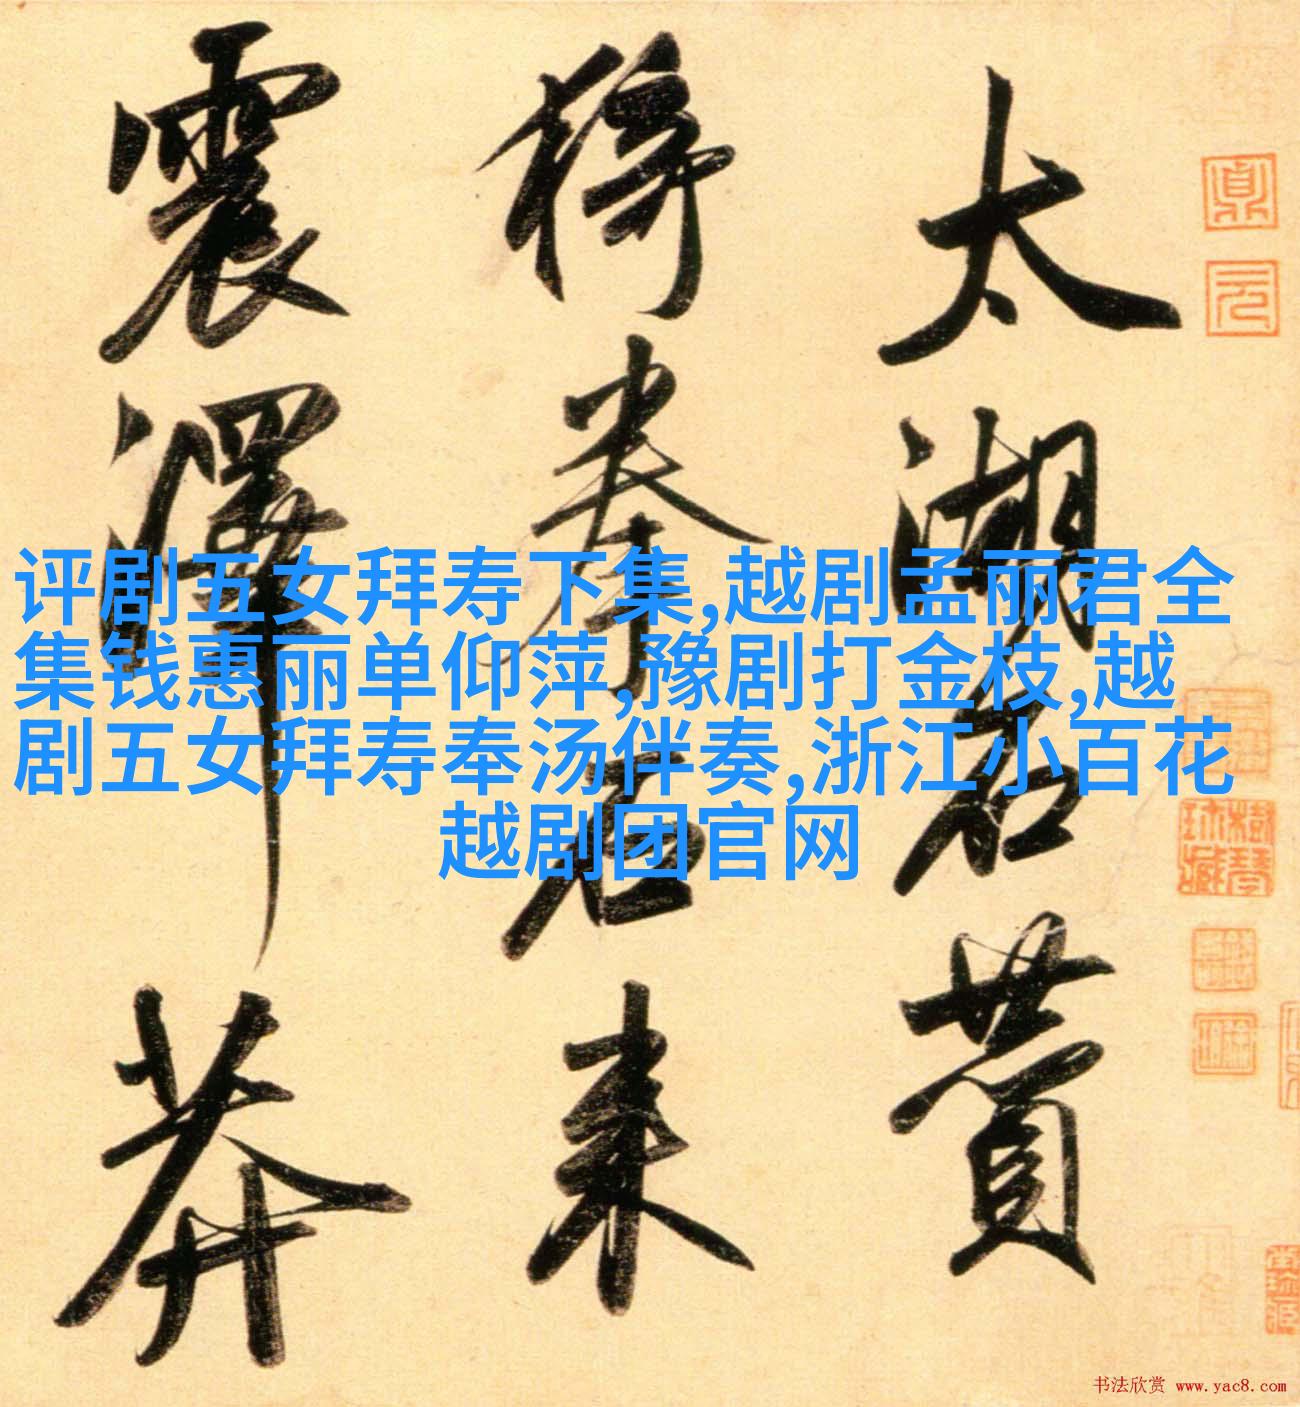 评剧五女拜寿下集,越剧孟丽君全
集钱惠丽单仰萍,豫剧打金枝,越
剧五女拜寿奉汤伴奏,浙江小百花
越剧团官网
太湖石贊
猗拳石来
震澤莽
书法欣赏 www.yac8.com